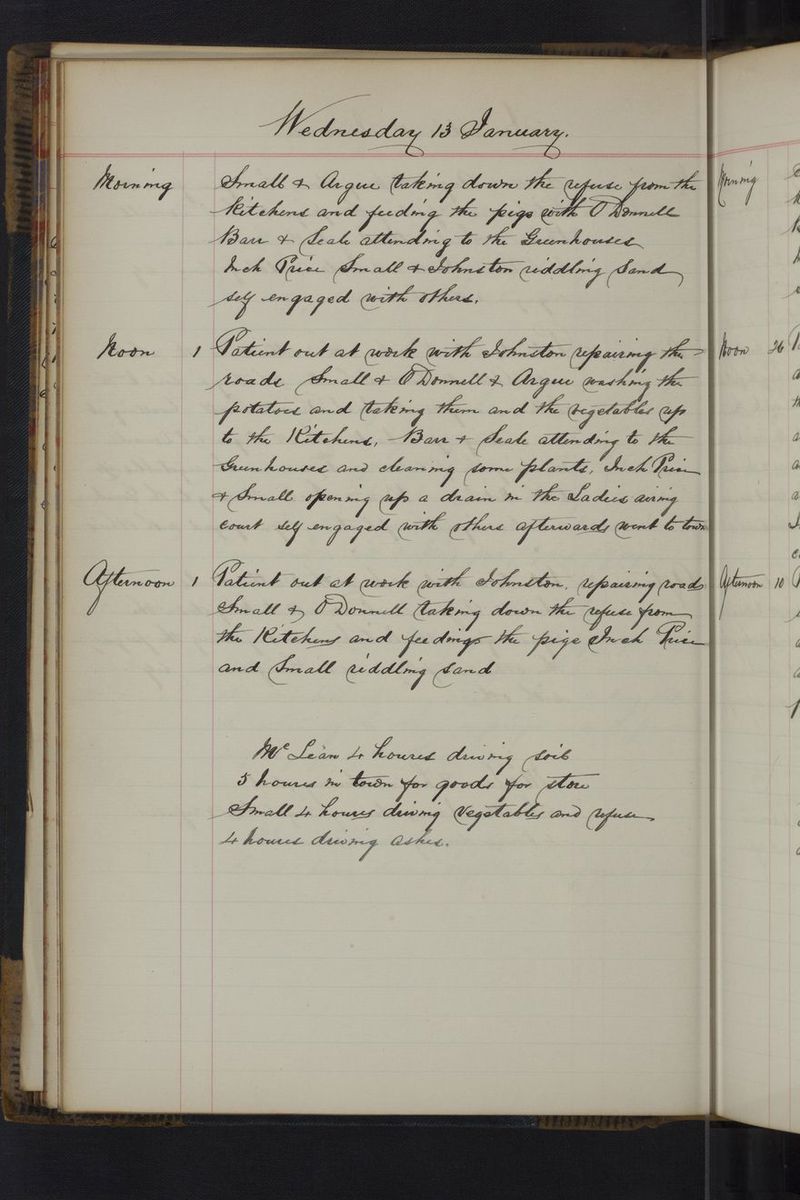 Wednesday 13 January.
Morning Small & Argue taking down the refuse from the
Kitchens and feeding the pigs with O'Donnell
Barr & Seale attending to the Greenhouses
Inch Price Small & Johnston riddling Sand
self engaged with others.
Noon 1 Patient out at work with Johnston repairing the
roads Small & O'Donnell & Argue washing the
potatoes and taking them and the vegetables up
to the Kitchens. Barr & Seale attending to the
Greenhouses and cleaning some plants. Inch Price
& Small opening up a drain in the Ladies airing
court self engaged with others afterwards went to town
Afternoon 1 Patient out at work with Johnston. repairing roads
Small & O'Donnell taking down the refuse from
the Kitchens and feedings the pigs Inch Price
and Small riddling Sand
Mc Lean 4 houres driving soil
5 houres in town for goods for store
Small 4 houres driving vegetables and refuse
4 houres driving ashes.
Morning
Noon 26
Afternoon 10